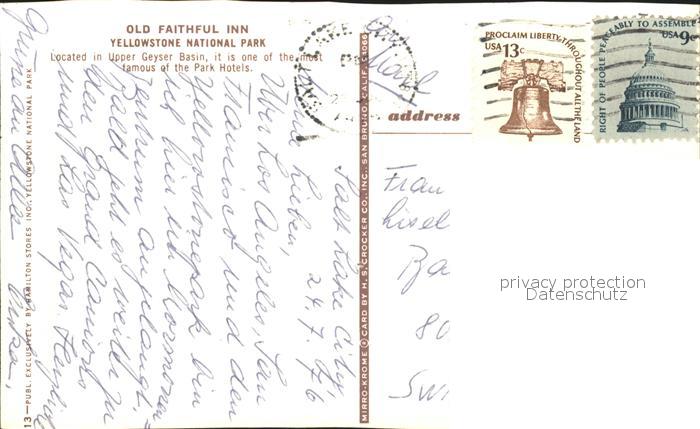 OLD FAITHFUL INN
YELLOWSTONE NATIONAL PARK
Located in Upper Geyser Basin, it is one of the most
famous of the Park Hotels.
13—PUBL. EXCLUSIVELY BY HAMILTON STORES INC., YELLOWSTONE NATIONAL PARK
MIRRO-KROME ® CARD BY H. S. CROCKER CO., INC., SAN BRUNO, CALIF. 94066
SALT LAKE CITY
PROCLAIM LIBERTY THROUGHOUT ALL THE LAND
USA
13c
RIGHT OF PEOPLE PEACEABLY TO ASSEMBLE
USA 9c
address
Salt Lake City,
24.7.76
Lieben,
Über Los Angeles, San
Francisco und den
Yellowstonepark bin
ich hier im Mormonen
Zentrum angelangt.
Jetzt geht es weiter zu
den Grand Canions
und Las Vegas. Herzliche
Grüsse an alle
Fran
Lisel
Ba
80
Swi
privacy protection
Datenschutz